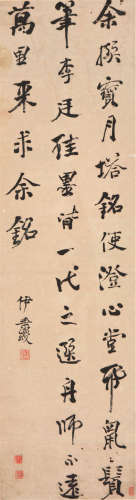 余撰寶月塔銘使澄心堂帋鼠鬚
筆李廷珪墨皆一代之選舟師不遠
萬里來求余銘
伊秉綬